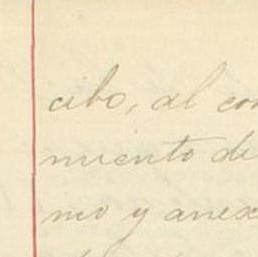 cibo, al con
miento de
mo y anex